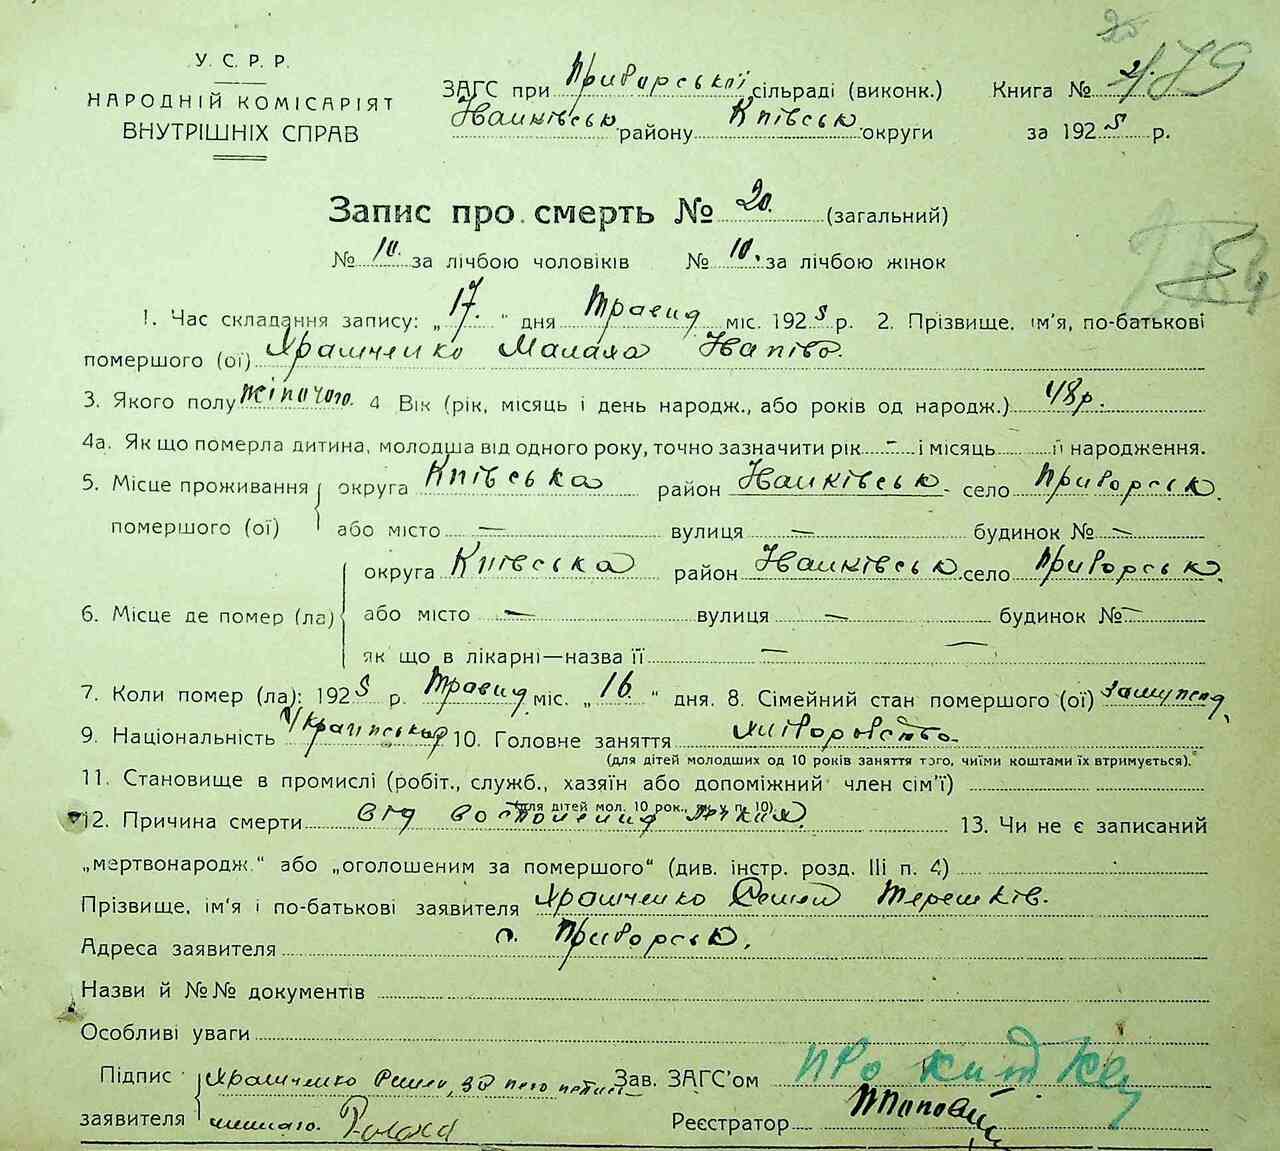 У. С. Р. Р.
НАРОДНІЙ КОМІСАРІЯТ
ВНУТРІШНІХ СПРАВ
ЗАГС при Приборської сільраді (виконк.)
Іванківськ району Київськ округи
Книга №
за 1925 р.
Запис про смерть № 20. (загальний)
№ 10. за лічбою чоловіків № 10. за лічбою жінок
1. Час складання запису: „17.“ дня Травня міс. 1925 р. 2. Прізвище, ім'я, по-батькові
помершого (ої) Храпченко
3. Якого полу жіночого. 4 Вік (рік, місяць і день народж., або років од народж.) 48 р.
4а. Як що померла дитина, молодша від одного року, точно зазначити рік – і місяць її народження.
5. Місце проживання округа Київська район Іванківськ село Приборськ.
помершого (ої) або місто — вулиця — будинок № —
округа Київська район Іванківськ. село Приборськ.
6. Місце де помер (ла) або місто — вулиця — будинок № —
як що в лікарні—назва її —
7. Коли помер (ла): 1925 р. Травня міс. „16“ дня. 8. Сімейний стан помершого (ої) замужня,
9. Національність Українська 10. Головне заняття хліборобство.
(для дітей молодших од 10 років заняття того, чиїми коштами їх втримується).
11. Становище в промислі (робіт., служб., хазяїн або допоміжний член сім'ї)
(для дітей мол. 10 рок., як у п. 10)
12. Причина смерти від 13. Чи не є записаний
„мертвонародж.“ або „оголошеним за помершого“ (див. інстр. розд. III п. 4)
Прізвище, ім'я і по-батькові заявителя Храпченко Терешків.
Адреса заявителя с. Приборськ.
Назви й №№ документів
Особливі уваги
Підпис Храпченко Зав. ЗАГС'ом
заявителя Реєстратор